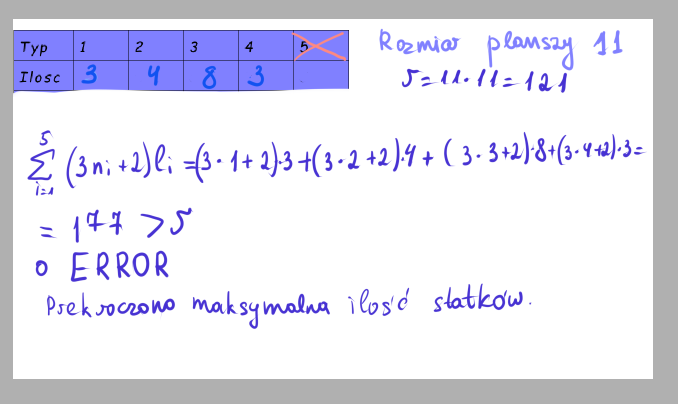 Typ 1 2 3 4 5
Ilosc 3 4 8 3
Rozmiar planszy 11
S=11·11=121
5
∑ (3nᵢ+2)lᵢ =(3·1+2)·3+(3·2+2)·4+(3·3+2)·8+(3·4+2)·3=
i=1
= 177 > S
o ERROR
Przekroczono maksymalna ilość statków.